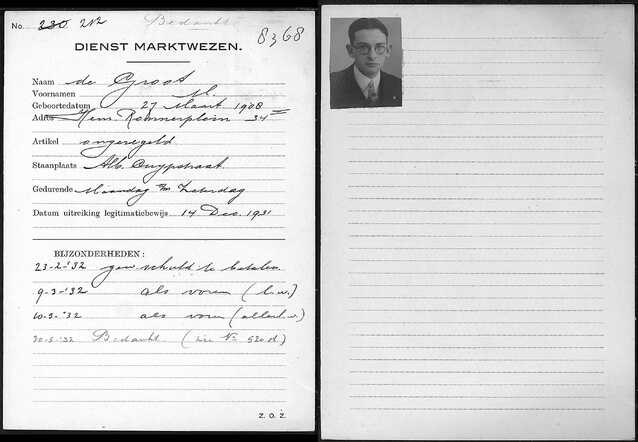 No. 230 212 Bedankt
8368
DIENST MARKTWEZEN.
Naam de Groot
Voornamen M.
Geboortedatum 27 Maart 1908
Adres Hens. Ronnerplein 34
Artikel ongeregeld
Staanplaats Alb. Cuypstraat.
Gedurende Maandag t/m Zaterdag
Datum uitreiking legitimatiebewijs 14 Dec. 1931
BIJZONDERHEDEN:
23-2-'32 gew. schuld te betalen
9-3-'32 als voren (b.w.)
10-3-'32 als voren
30-5-'32 Bedankt. (zie No 520 d)
Z.O.Z.